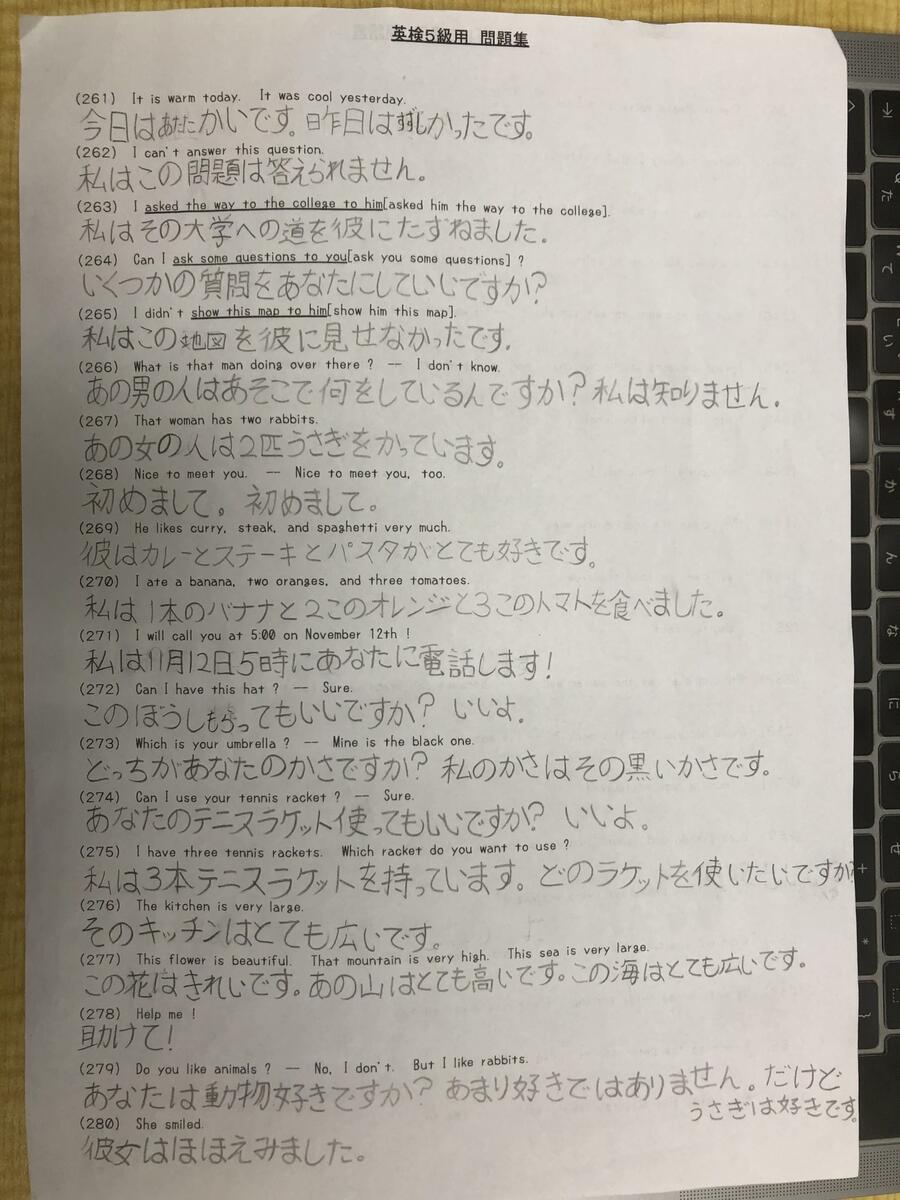 英検5級用 問題集
(261) It is warm today. It was cool yesterday.
今日はあたたかいです。昨日はすずしかったです。
(262) I can't answer this question.
私はこの問題は答えられません。
(263) I asked the way to the college to him[asked him the way to the college].
私はその大学への道を彼にたずねました。
(264) Can I ask some questions to you[ask you some questions] ?
いくつかの質問をあなたにしていいですか?
(265) I didn't show this map to him[show him this map].
私はこの地図を彼に見せなかったです。
(266) What is that man doing over there ? -- I don't know.
あの男の人はあそこで何をしているんですか? 私は知りません。
(267) That woman has two rabbits.
あの女の人は2匹うさぎをかっています。
(268) Nice to meet you. -- Nice to meet you, too.
初めまして。初めまして。
(269) He likes curry, steak, and spaghetti very much.
彼はカレーとステーキとパスタがとても好きです。
(270) I ate a banana, two oranges, and three tomatoes.
私は1本のバナナと2このオレンジと3このトマトを食べました。
(271) I will call you at 5:00 on November 12th !
私は11月12日5時にあなたに電話します!
(272) Can I have this hat ? -- Sure.
このぼうしもらってもいいですか? いいよ。
(273) Which is your umbrella ? -- Mine is the black one.
どっちがあなたのかさですか? 私のかさはその黒いかさです。
(274) Can I use your tennis racket ? -- Sure.
あなたのテニスラケット使ってもいいですか? いいよ。
(275) I have three tennis rackets. Which racket do you want to use ?
私は3本テニスラケットを持っています。どのラケットを使いたいですか?
(276) The kitchen is very large.
そのキッチンはとても広いです。
(277) This flower is beautiful. That mountain is very high. This sea is very large.
この花はきれいです。あの山はとても高いです。この海はとても広いです。
(278) Help me !
助けて!
(279) Do you like animals ? -- No, I don't. But I like rabbits.
あなたは動物好きですか? あまり好きではありません。だけど
うさぎは好きです。
(280) She smiled.
彼女はほほえみました。